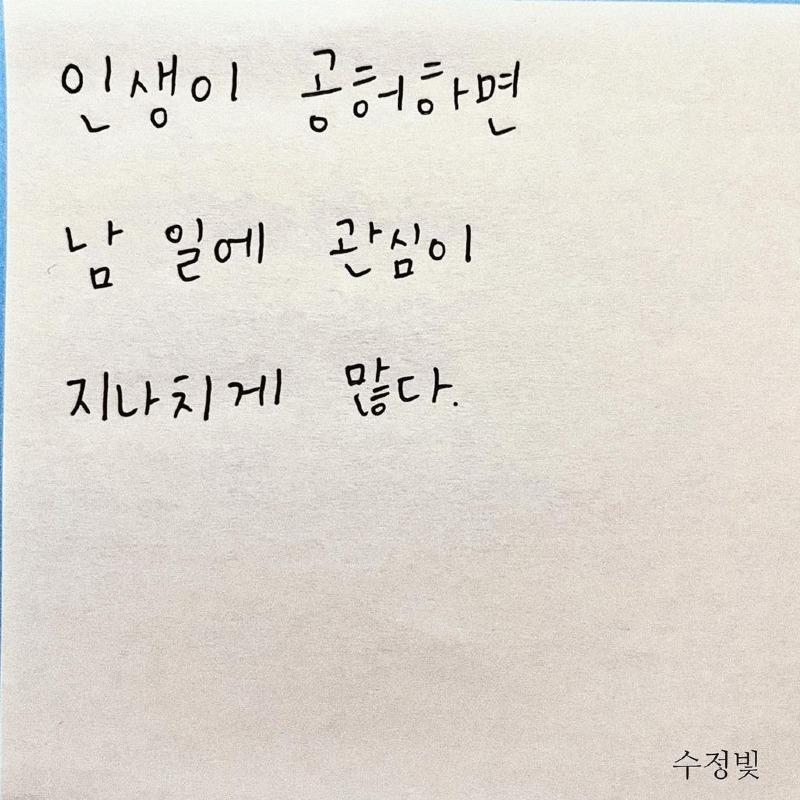 인생이 공허하면
남 일에 관심이
지나치게 많다.
수정빛